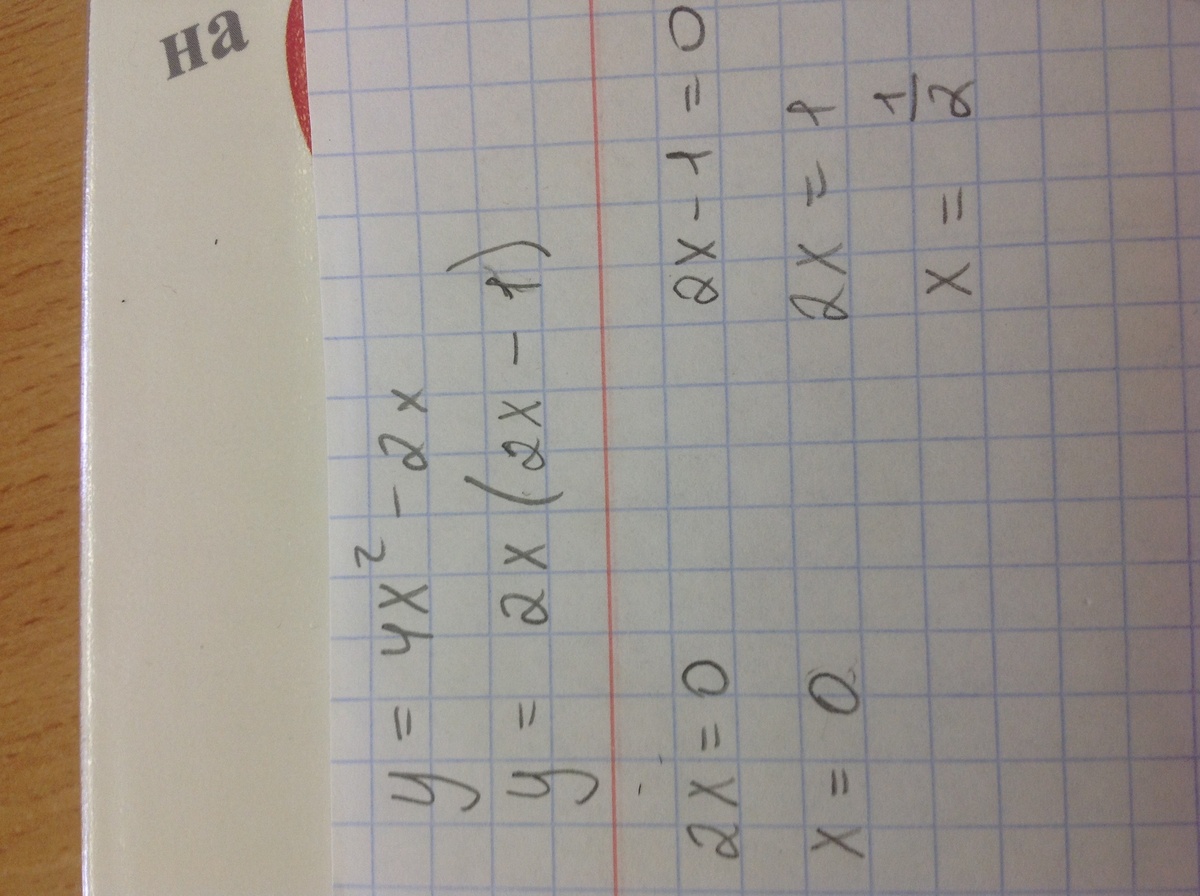 на
y = 4x² - 2x
y = 2x(2x - 1)
2x = 0 2x - 1 = 0
x = 0 2x = 1
x = 1/2